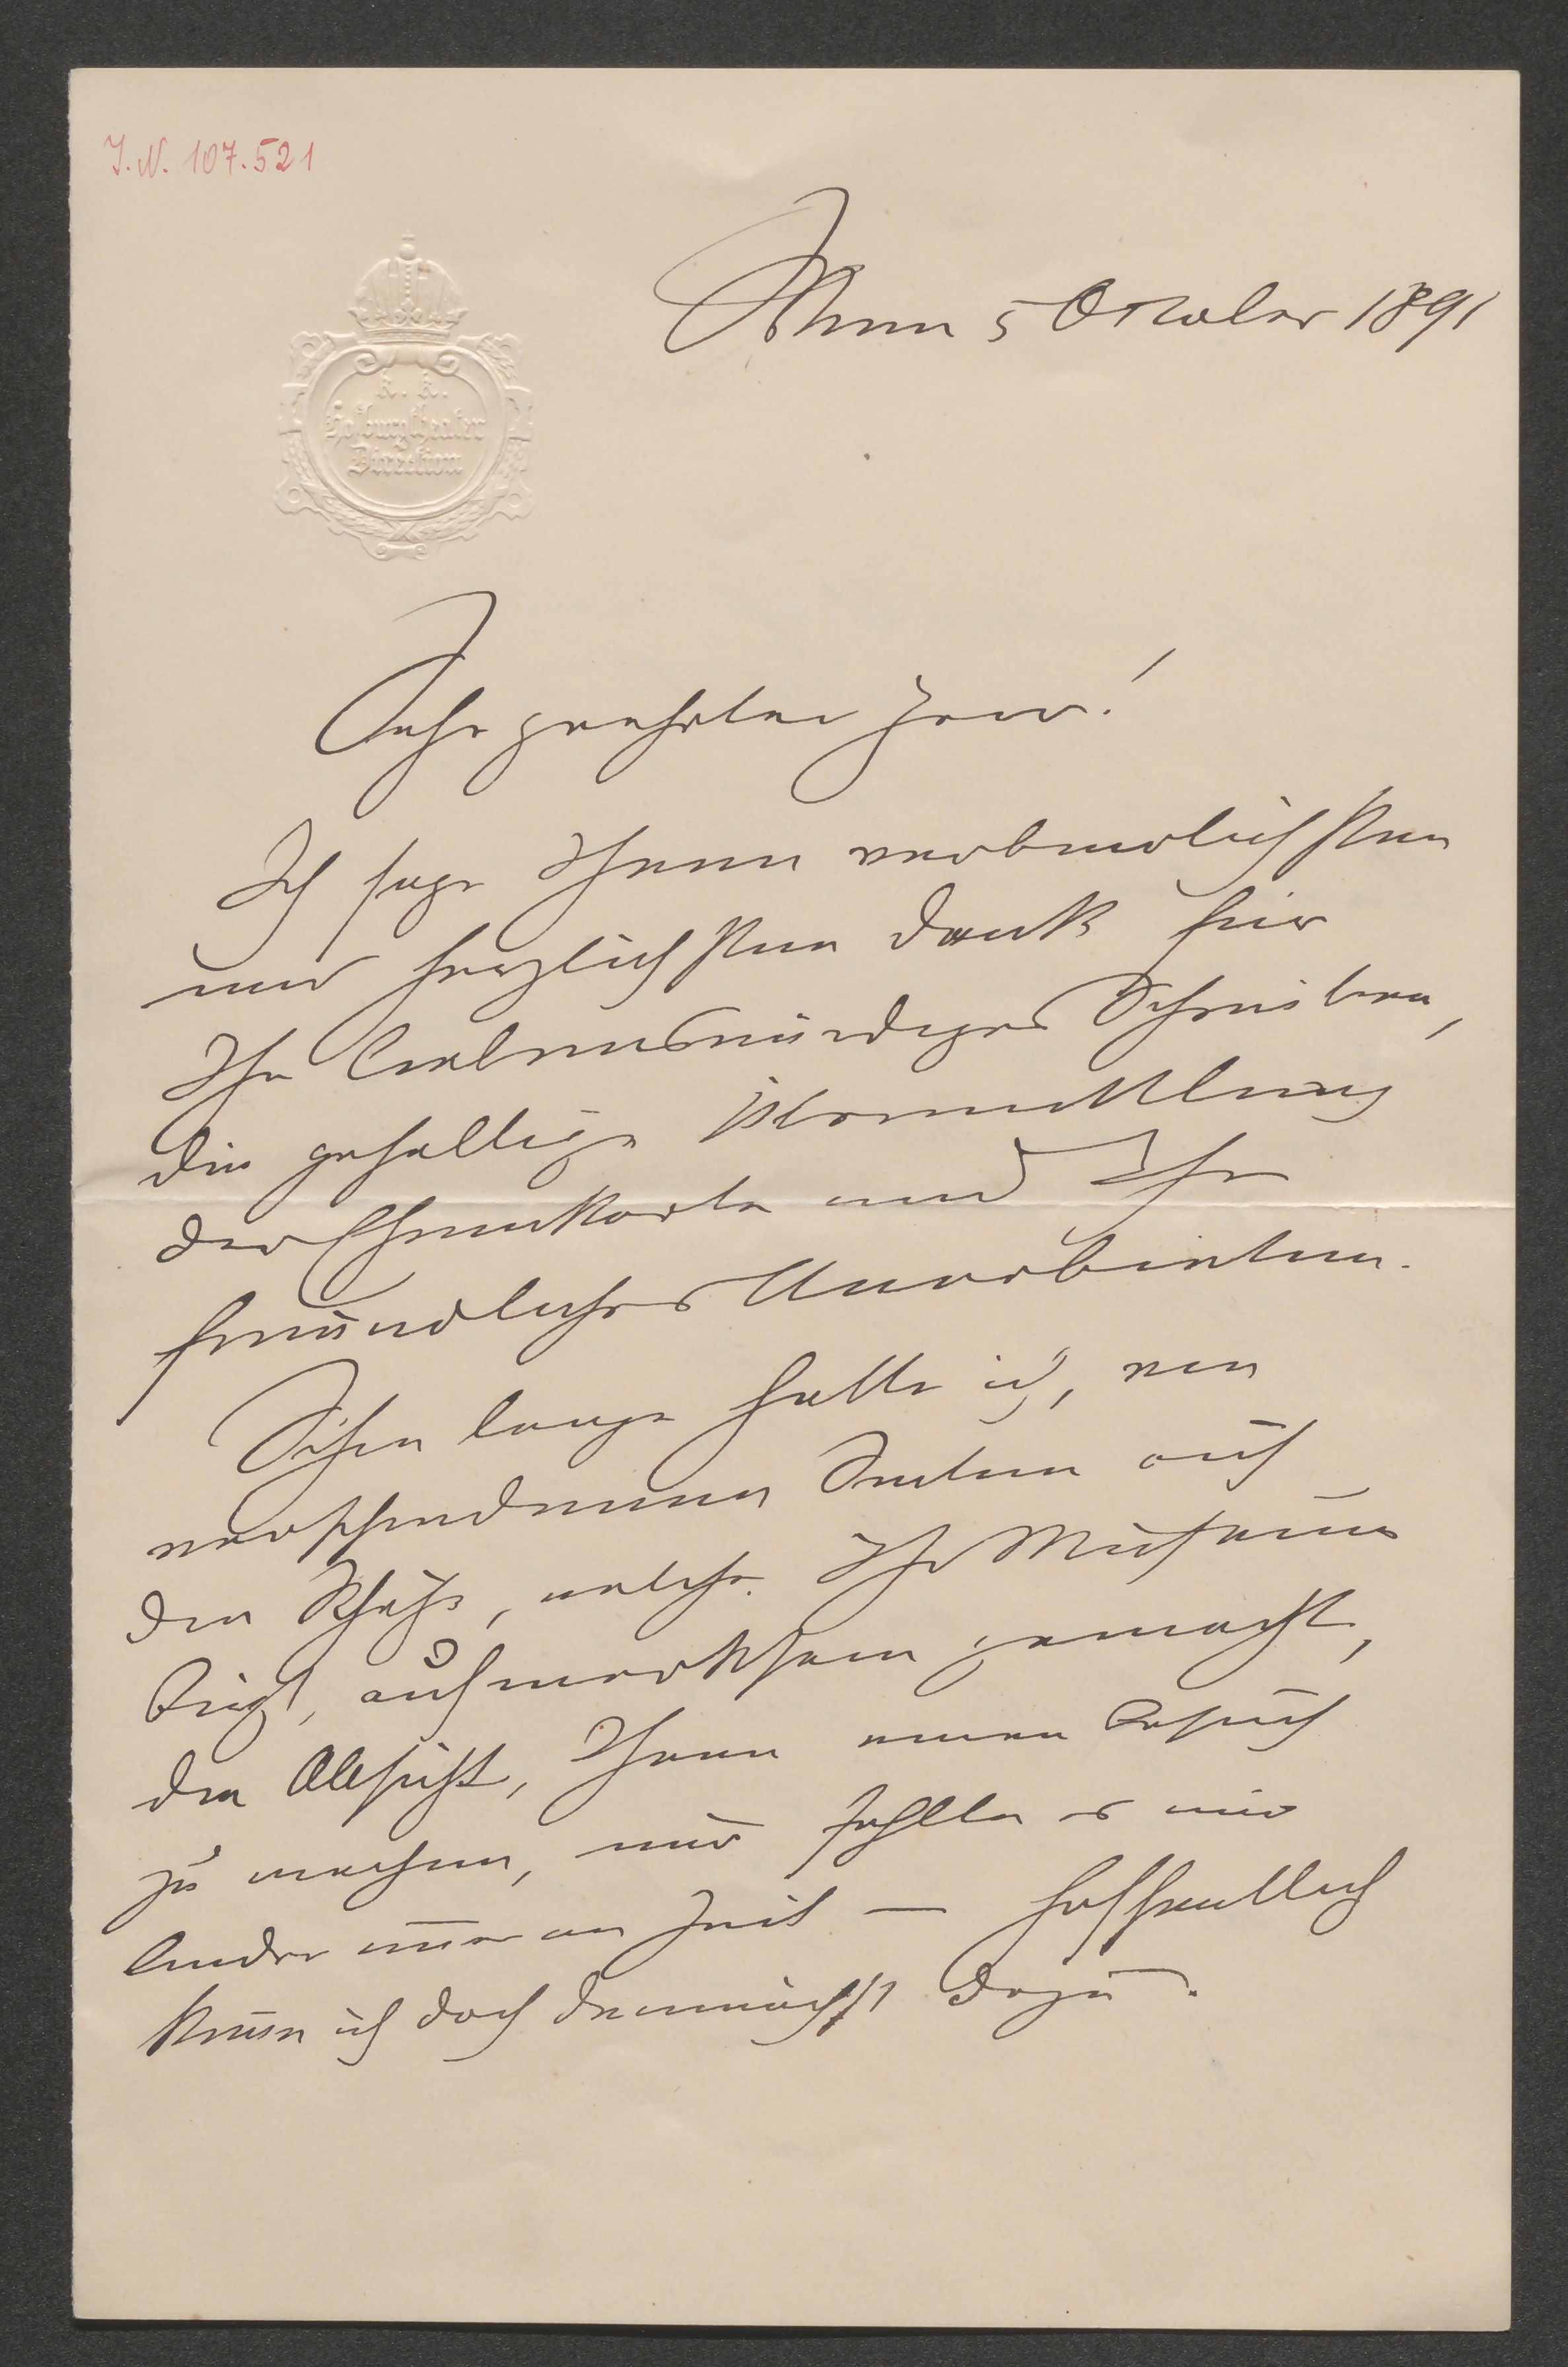 I. N. 107.521
k. k.
Hofburgtheater
Direction
Wien 5 October 1891
Sehr geehrter Herr!
Ich sage Ihnen verbindlichsten
und herzlichsten Dank für
Ihr liebenswürdiges Schreiben,
die gefällige Übermittlung
der Ehrenkarte und Ihr
freundliches Anerbieten.
Schon lange hatte ich, von
verschiedenen Seiten auf
die Schätze, welche Ihr Museum
birgt, aufmerksam gemacht,
die Absicht, Ihnen einen Besuch
zu machen, nur fehlte es mir
leider immer an Zeit — hoffentlich
komme ich doch demnächst dazu.